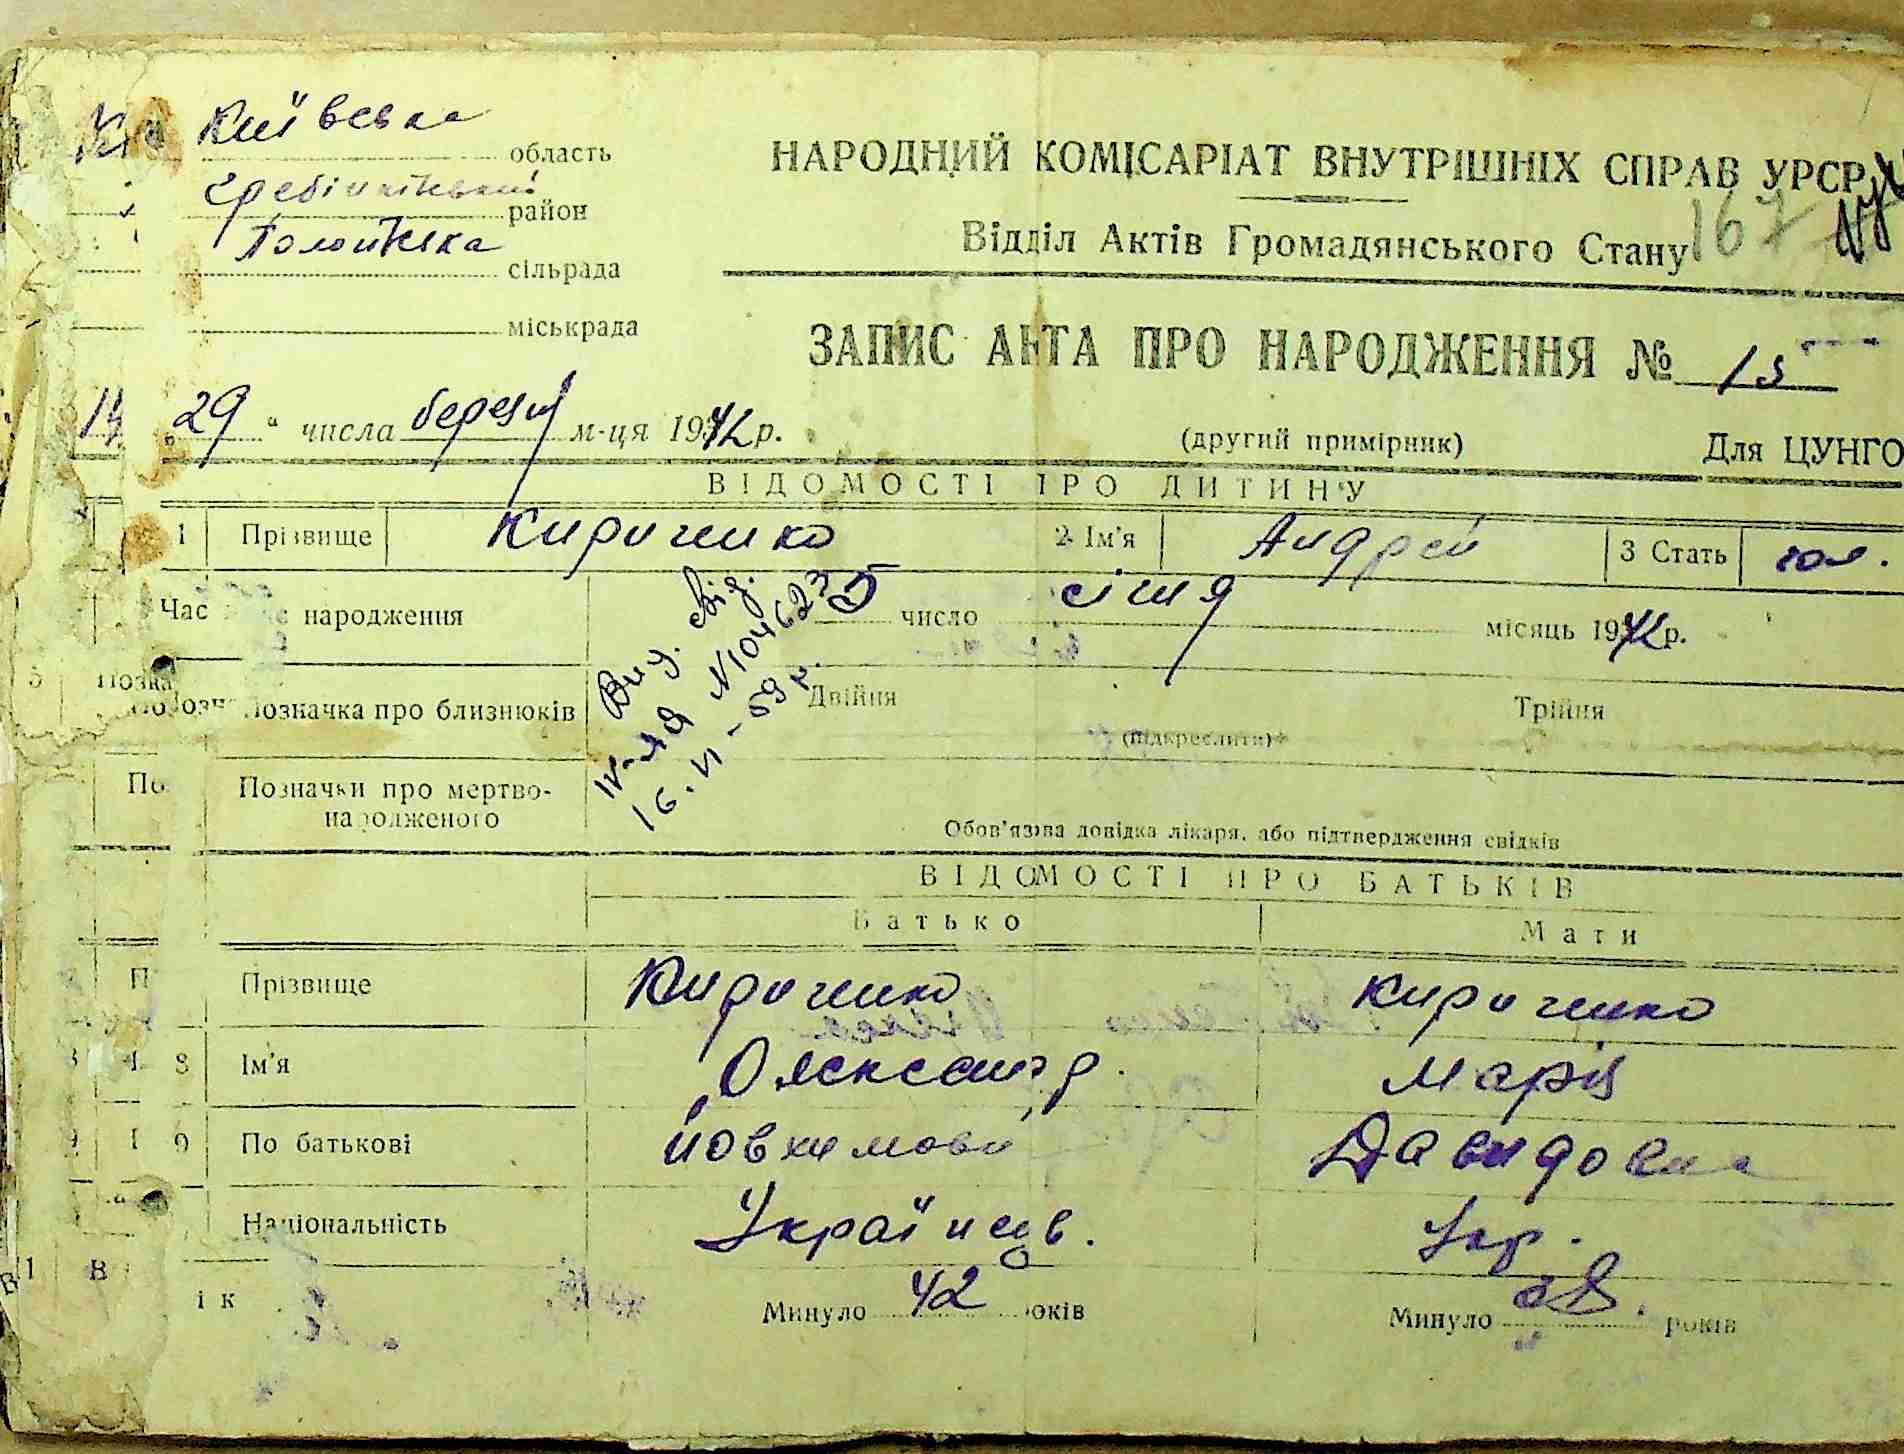 Київська область
Гребінківський район
сільрада
міськрада
НАРОДНИЙ КОМІСАРІАТ ВНУТРІШНІХ СПРАВ УРСР
167
Відділ Актів Громадянського Стану
ЗАПИС АКТА ПРО НАРОДЖЕННЯ № 15
„29“ числа березня м-ця 1942 р.
(другий примірник) Для ЦУНГО
ВІДОМОСТІ ПРО ДИТИНУ
1 Прізвище Кириченко 2 Ім'я Андрей 3 Стать чол.
Час народження 5 число січня місяць 1942 р.
Позначка про близнюків Двійня Трійня
(підкреслити)
Вид. свід.
IV-ЯЯ N104623
16.VI-59 р.
Позначки про мертво-
народженого
Обов'язова довідка лікаря, або підтвердження свідків
ВІДОМОСТІ ПРО БАТЬКІВ
Батько Мати
Прізвище Кириченко Кириченко
8 Ім'я Олександр Марія
9 По батькові Йовхимович Давидовна
Національність Українець. Укр.
Вік Минуло 42 років Минуло років